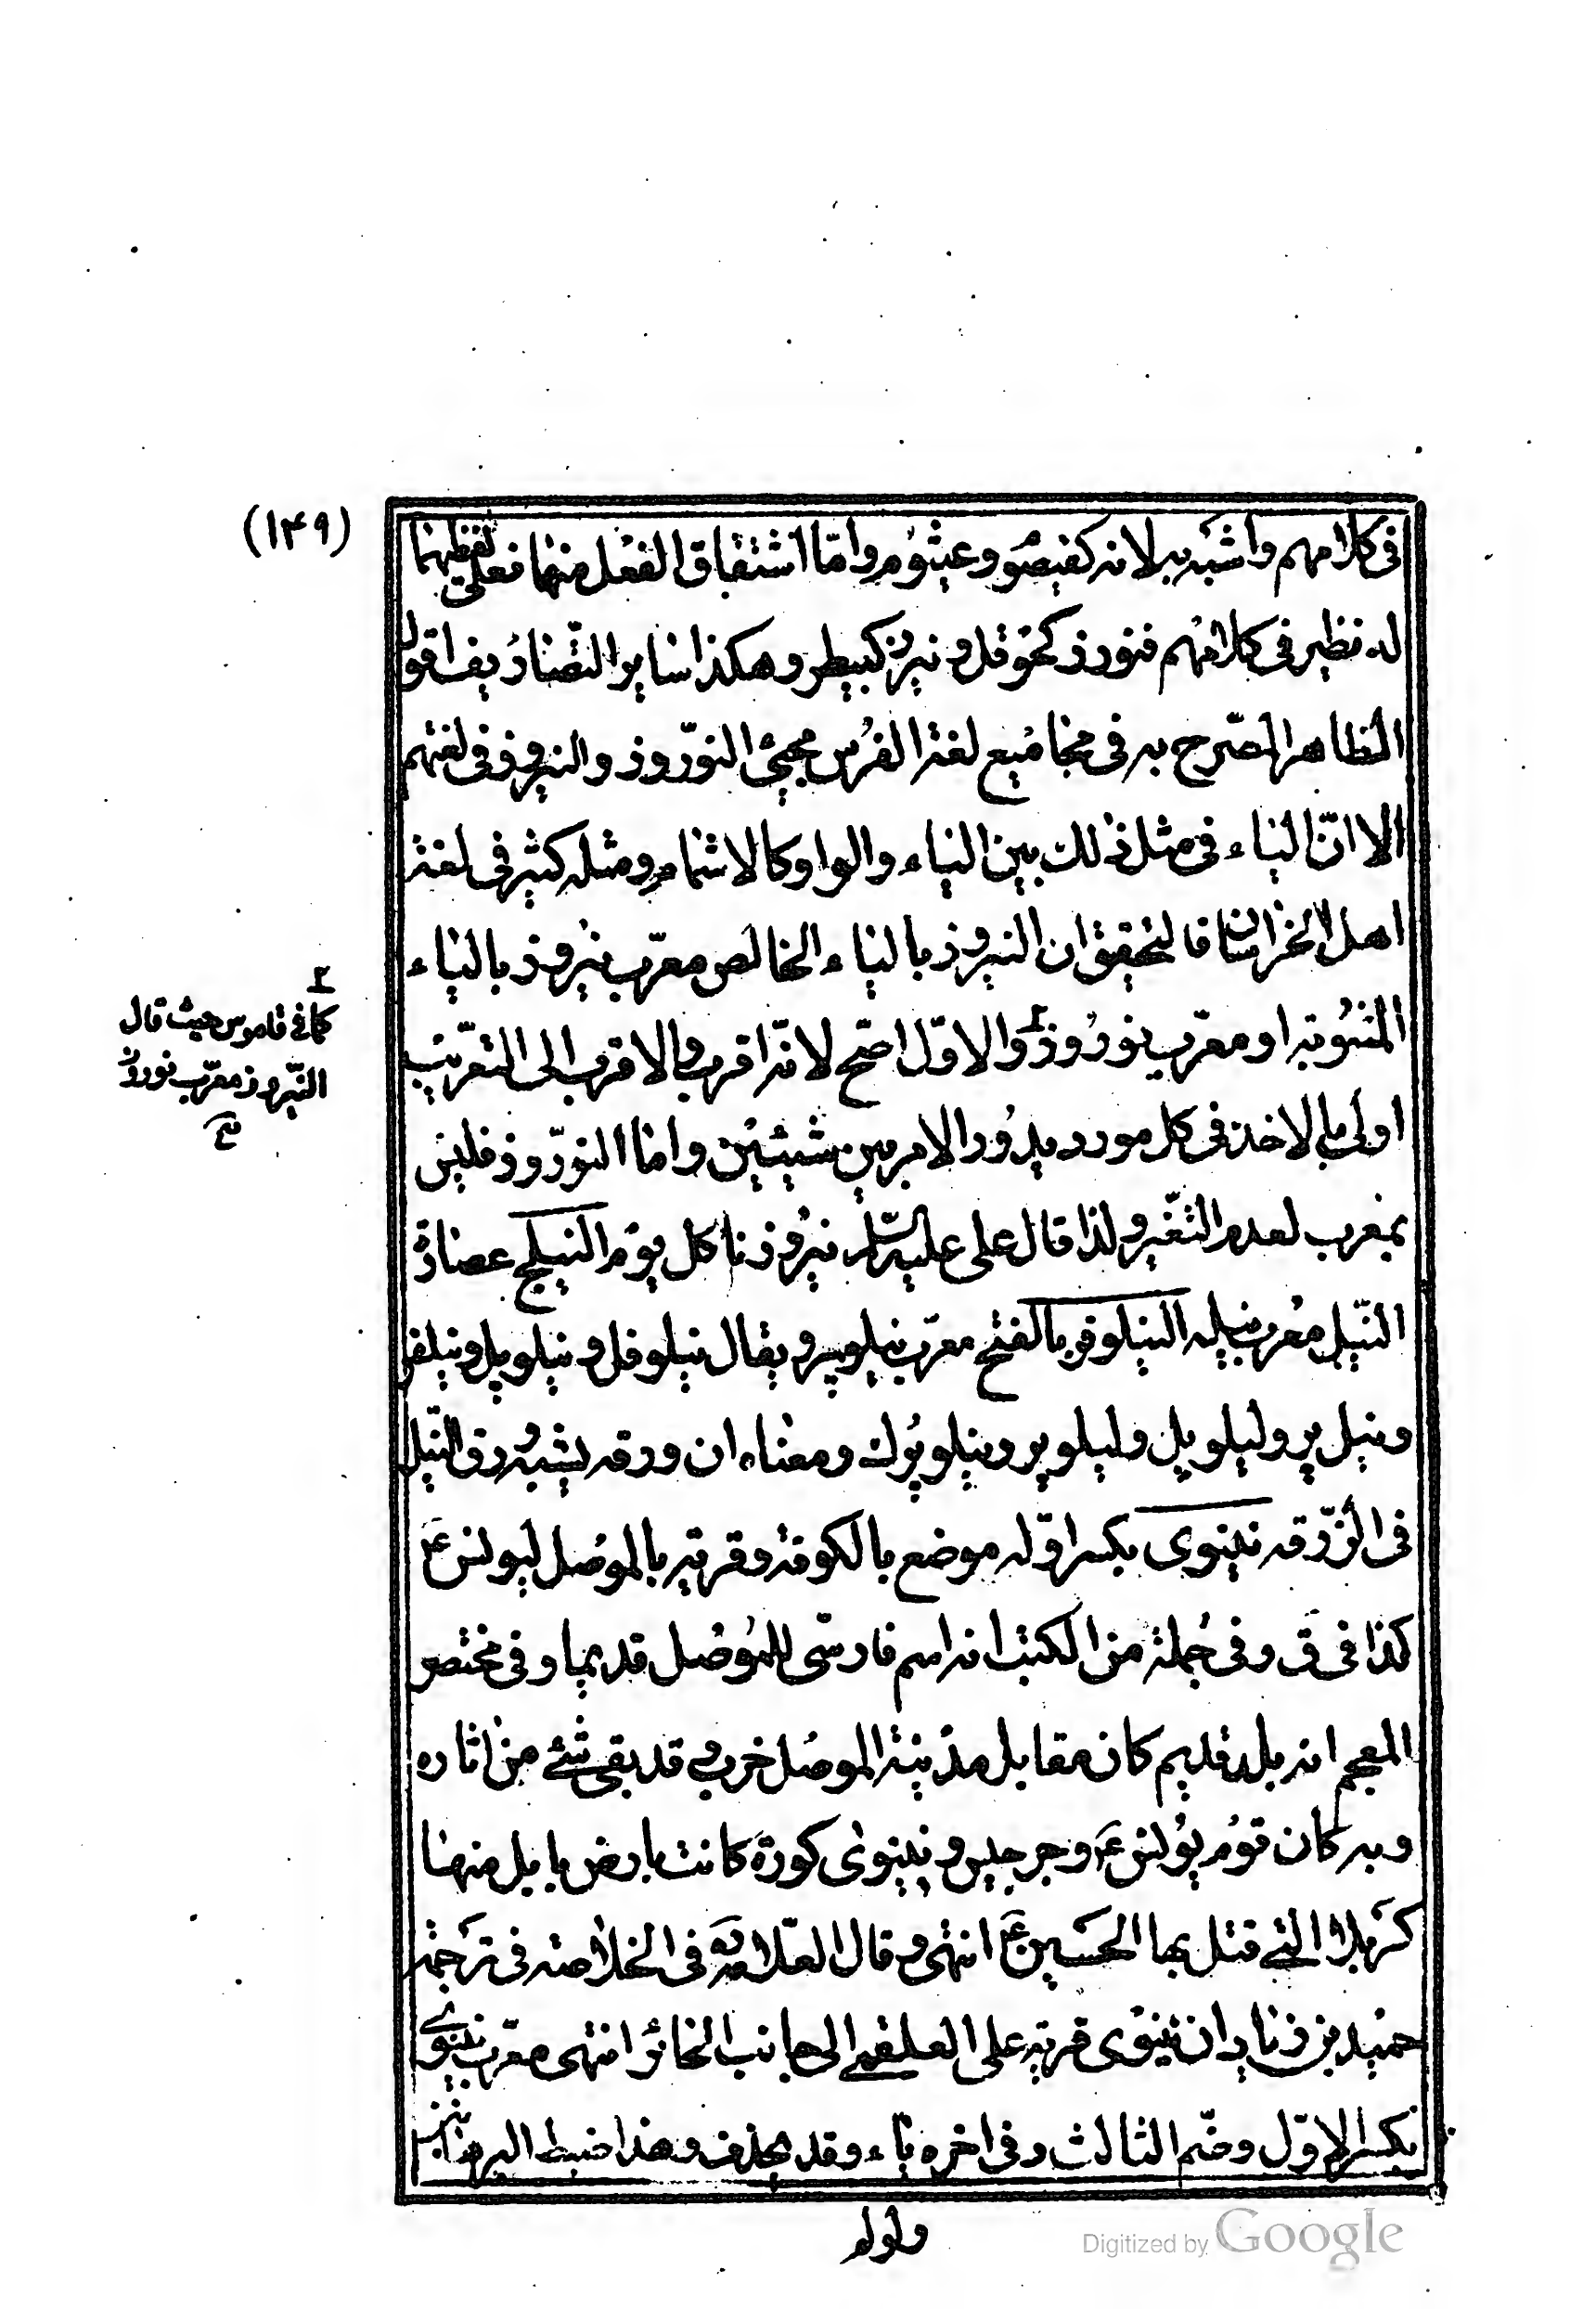 (۱۴۹)
فى كلامهم واشبه به لانه كقيصوم وعيثوم واما اشتقاق الفعل منهما فعلى لفظيهما
له نظير فى كلامهم فنورز كحوقل ونيرز كبيطر وهكذا ساير التصاريف اقول
الظاهر المصرّح به فى مجاميع لغة الفرس مجيئ النوروز والنيروز فى لغتهم
الا انّ الياء فى مثل ذلك بين الياء والواو كالاشمام ومثله كثير فى لغة
اهل الخراسان فالتحقيق ان النيروز بالياء الخالص معرّب نيروز بالياء
المشوبة او معرّب نوروز۲ والاوّل اصّح لانّه اقرب والاقرب الى التعريب
اولى بالاخذ فى كل مورد يدور الامر بين شيئين واما النوروز فليس
بمعرب لعدم التغيّر ولذا قال على عليه السّلم نيروزنا كل يوم النيلج عصارة
النّيل معرب نيله النيلوفر بالفتح معرّب نيلوپر ويقال نيلوفل ونيلوپل ونيلفر
ونيل پر وليلوپل وليلوپر ونيلوپرك ومعناه ان ورقه يشبه ورق النّيل
فى الزّرقه نينوى بكسر اوّله موضع بالكوفة وقرية بالموصل ليونس ع
كذا فى ق وفى جملة من الكتب انه اسم فارسّى للموصل قديما وفى مختصر
المعجم انه بلد قديم كان مقابل مدينة الموصل خرب وقد بقى شئ من اثاره
وبه كان قوم يونس ع وجرجيس ونينوى كورة كانت بارض بابل منها
كربلا التى قتل بها الحسين ع انتهى وقال العلامه ره فى الخلاصه فى ترجمة
حميد بن زياد ان نينوى قرية على العلقمى الى جانب الحائر انتهى معرب نينوى
بكسر الاوّل وضّم الثالث وفى اخره ياء وقد يحذف وهذا ضبط البرهان
واوله
۲
كما فى قاموس حيث قال
النّيروز معرّب نوروز